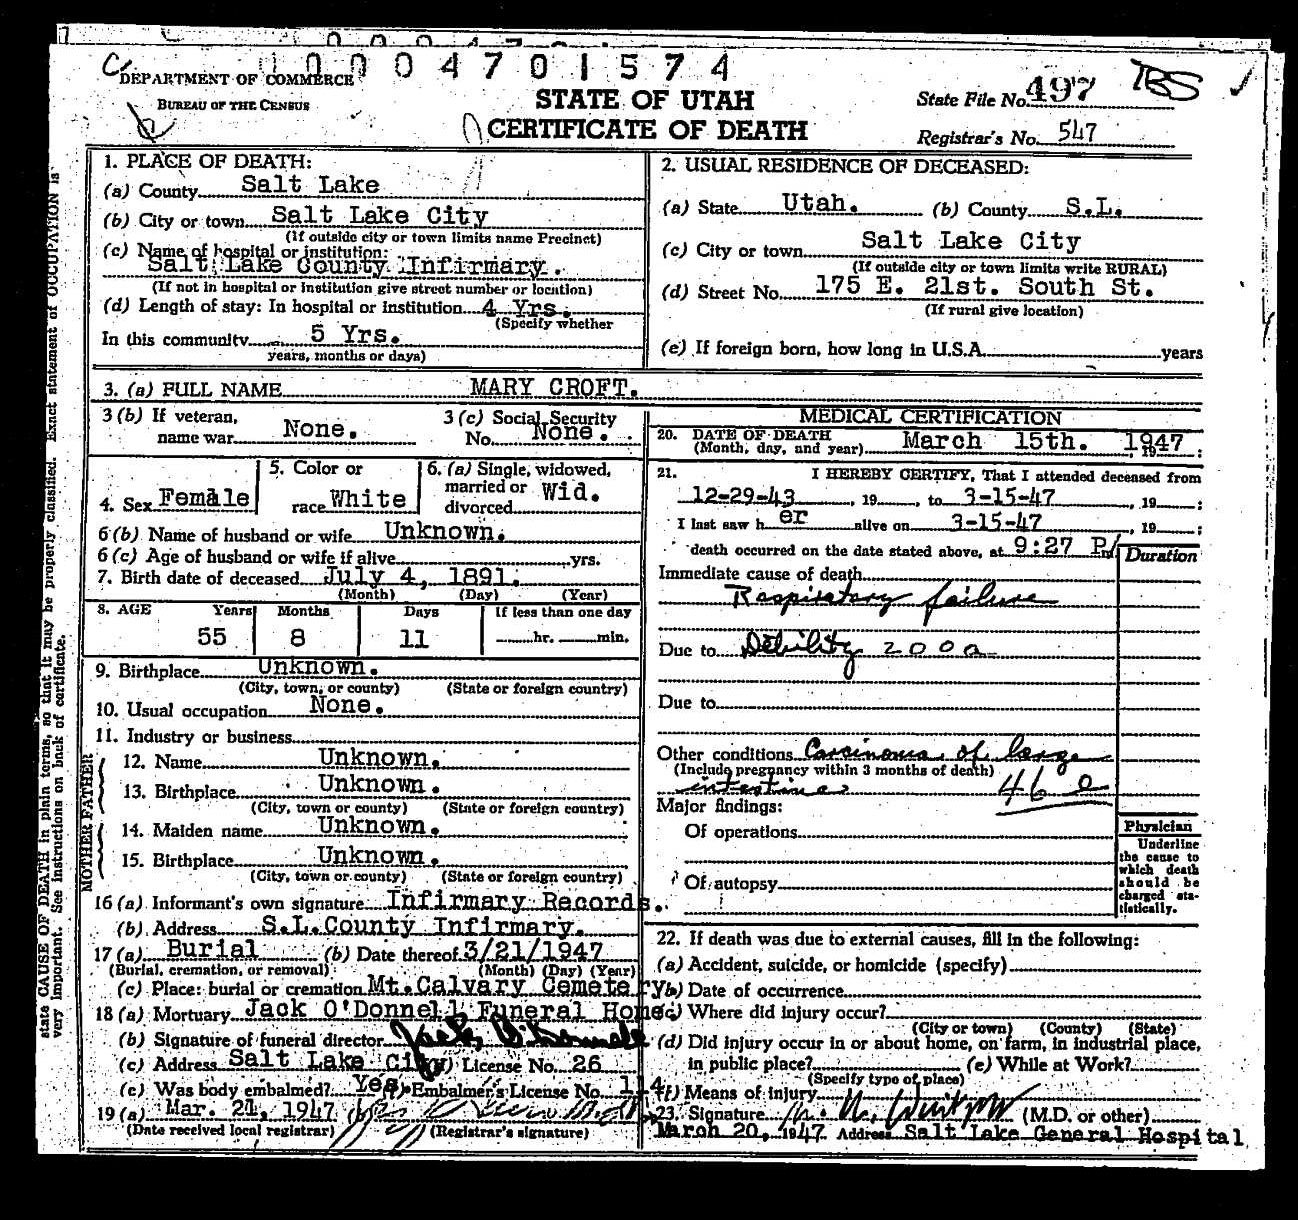 0004701574
DEPARTMENT OF COMMERCE
BUREAU OF THE CENSUS
STATE OF UTAH
CERTIFICATE OF DEATH
State File No. 497
Registrar's No. 547
state CAUSE OF DEATH in plain terms, so that it may be properly classified. Exact statement of OCCUPATION is
very important. See instructions on back of certificate.
1. PLACE OF DEATH:
(a) County Salt Lake
(b) City or town Salt Lake City
(If outside city or town limits name Precinct)
(c) Name of hospital or institution:
Salt Lake County Infirmary.
(If not in hospital or institution give street number or location)
(d) Length of stay: In hospital or institution 4 Yrs.
(Specify whether
In this community 5 Yrs.
years, months or days)
2. USUAL RESIDENCE OF DECEASED:
(a) State Utah. (b) County S.L.
(c) City or town Salt Lake City
(If outside city or town limits write RURAL)
(d) Street No. 175 E. 21st. South St.
(If rural give location)
(e) If foreign born, how long in U.S.A. years
3. (a) FULL NAME MARY CROFT.
3 (b) If veteran,
name war None.
3 (c) Social Security
No. None.
4. Sex Female
5. Color or
race White
6. (a) Single, widowed,
married or
divorced Wid.
6 (b) Name of husband or wife Unknown.
6 (c) Age of husband or wife if alive yrs.
7. Birth date of deceased July 4, 1891.
(Month) (Day) (Year)
8. AGE Years Months Days If less than one day
55 8 11 hr. min.
9. Birthplace Unknown.
(City, town, or county) (State or foreign country)
10. Usual occupation None.
11. Industry or business
FATHER
12. Name Unknown.
13. Birthplace Unknown.
(City, town or county) (State or foreign country)
MOTHER
14. Maiden name Unknown.
15. Birthplace Unknown.
(City, town or county) (State or foreign country)
16 (a) Informant's own signature Infirmary Records.
(b) Address S.L.County Infirmary.
17 (a) Burial (b) Date thereof 3/21/1947
(Burial, cremation, or removal) (Month) (Day) (Year)
(c) Place: burial or cremation Mt.Calvary Cemetery.
18 (a) Mortuary Jack O'Donnell Funeral Home.
(b) Signature of funeral director Jack O'Donnell
(c) Address Salt Lake City License No. 26
(c) Was body embalmed? Yes Embalmer's License No. 114
19 (a) Mar. 21, 1947 (b)
(Date received local registrar) (Registrar's signature)
MEDICAL CERTIFICATION
20. DATE OF DEATH
(Month, day, and year) March 15th. 1947
21. I HEREBY CERTIFY, That I attended deceased from
12-29-43, 19 , to 3-15-47, 19 ;
I last saw her alive on 3-15-47, 19 ;
death occurred on the date stated above, at 9:27 P m
Duration
Immediate cause of death
Respiratory failure
Due to Debility 200a
Due to
Other conditions Carcinoma of large
(Include pregnancy within 3 months of death)
intestines 46 e
Major findings:
Of operations
Of autopsy
Physician
Underline
the cause to
which death
should be
charged sta-
tistically.
22. If death was due to external causes, fill in the following:
(a) Accident, suicide, or homicide (specify)
(b) Date of occurrence
(c) Where did injury occur?
(City or town) (County) (State)
(d) Did injury occur in or about home, on farm, in industrial place,
in public place? (e) While at Work?
(Specify type of place)
(f) Means of injury
23. Signature (M.D. or other)
March 20, 1947 Address Salt Lake General Hospital